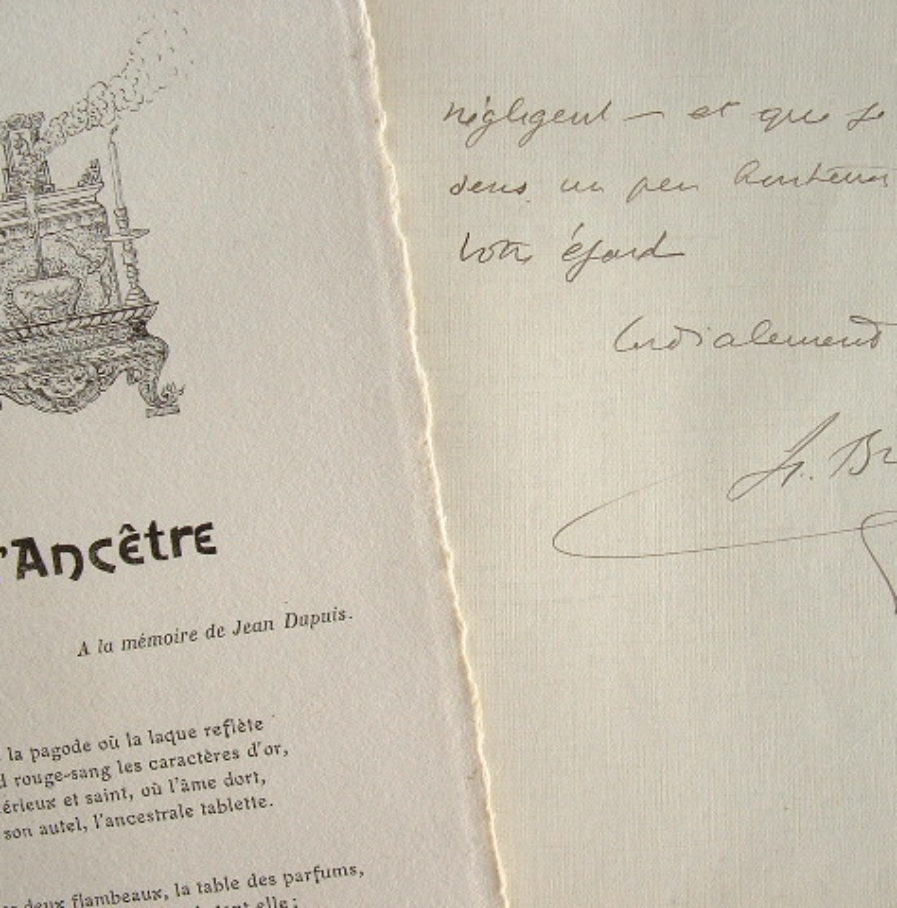 'Ancêtre
A la mémoire de Jean Dupuis.
la pagode où la laque reflète
d rouge-sang les caractères d'or,
érieux et saint, où l'âme dort,
son autel, l'ancestrale tablette.
deux flambeaux, la table des parfums,
elle;
négligent — et que je
sens un peu honteux
votre égard
Cordialement
Br